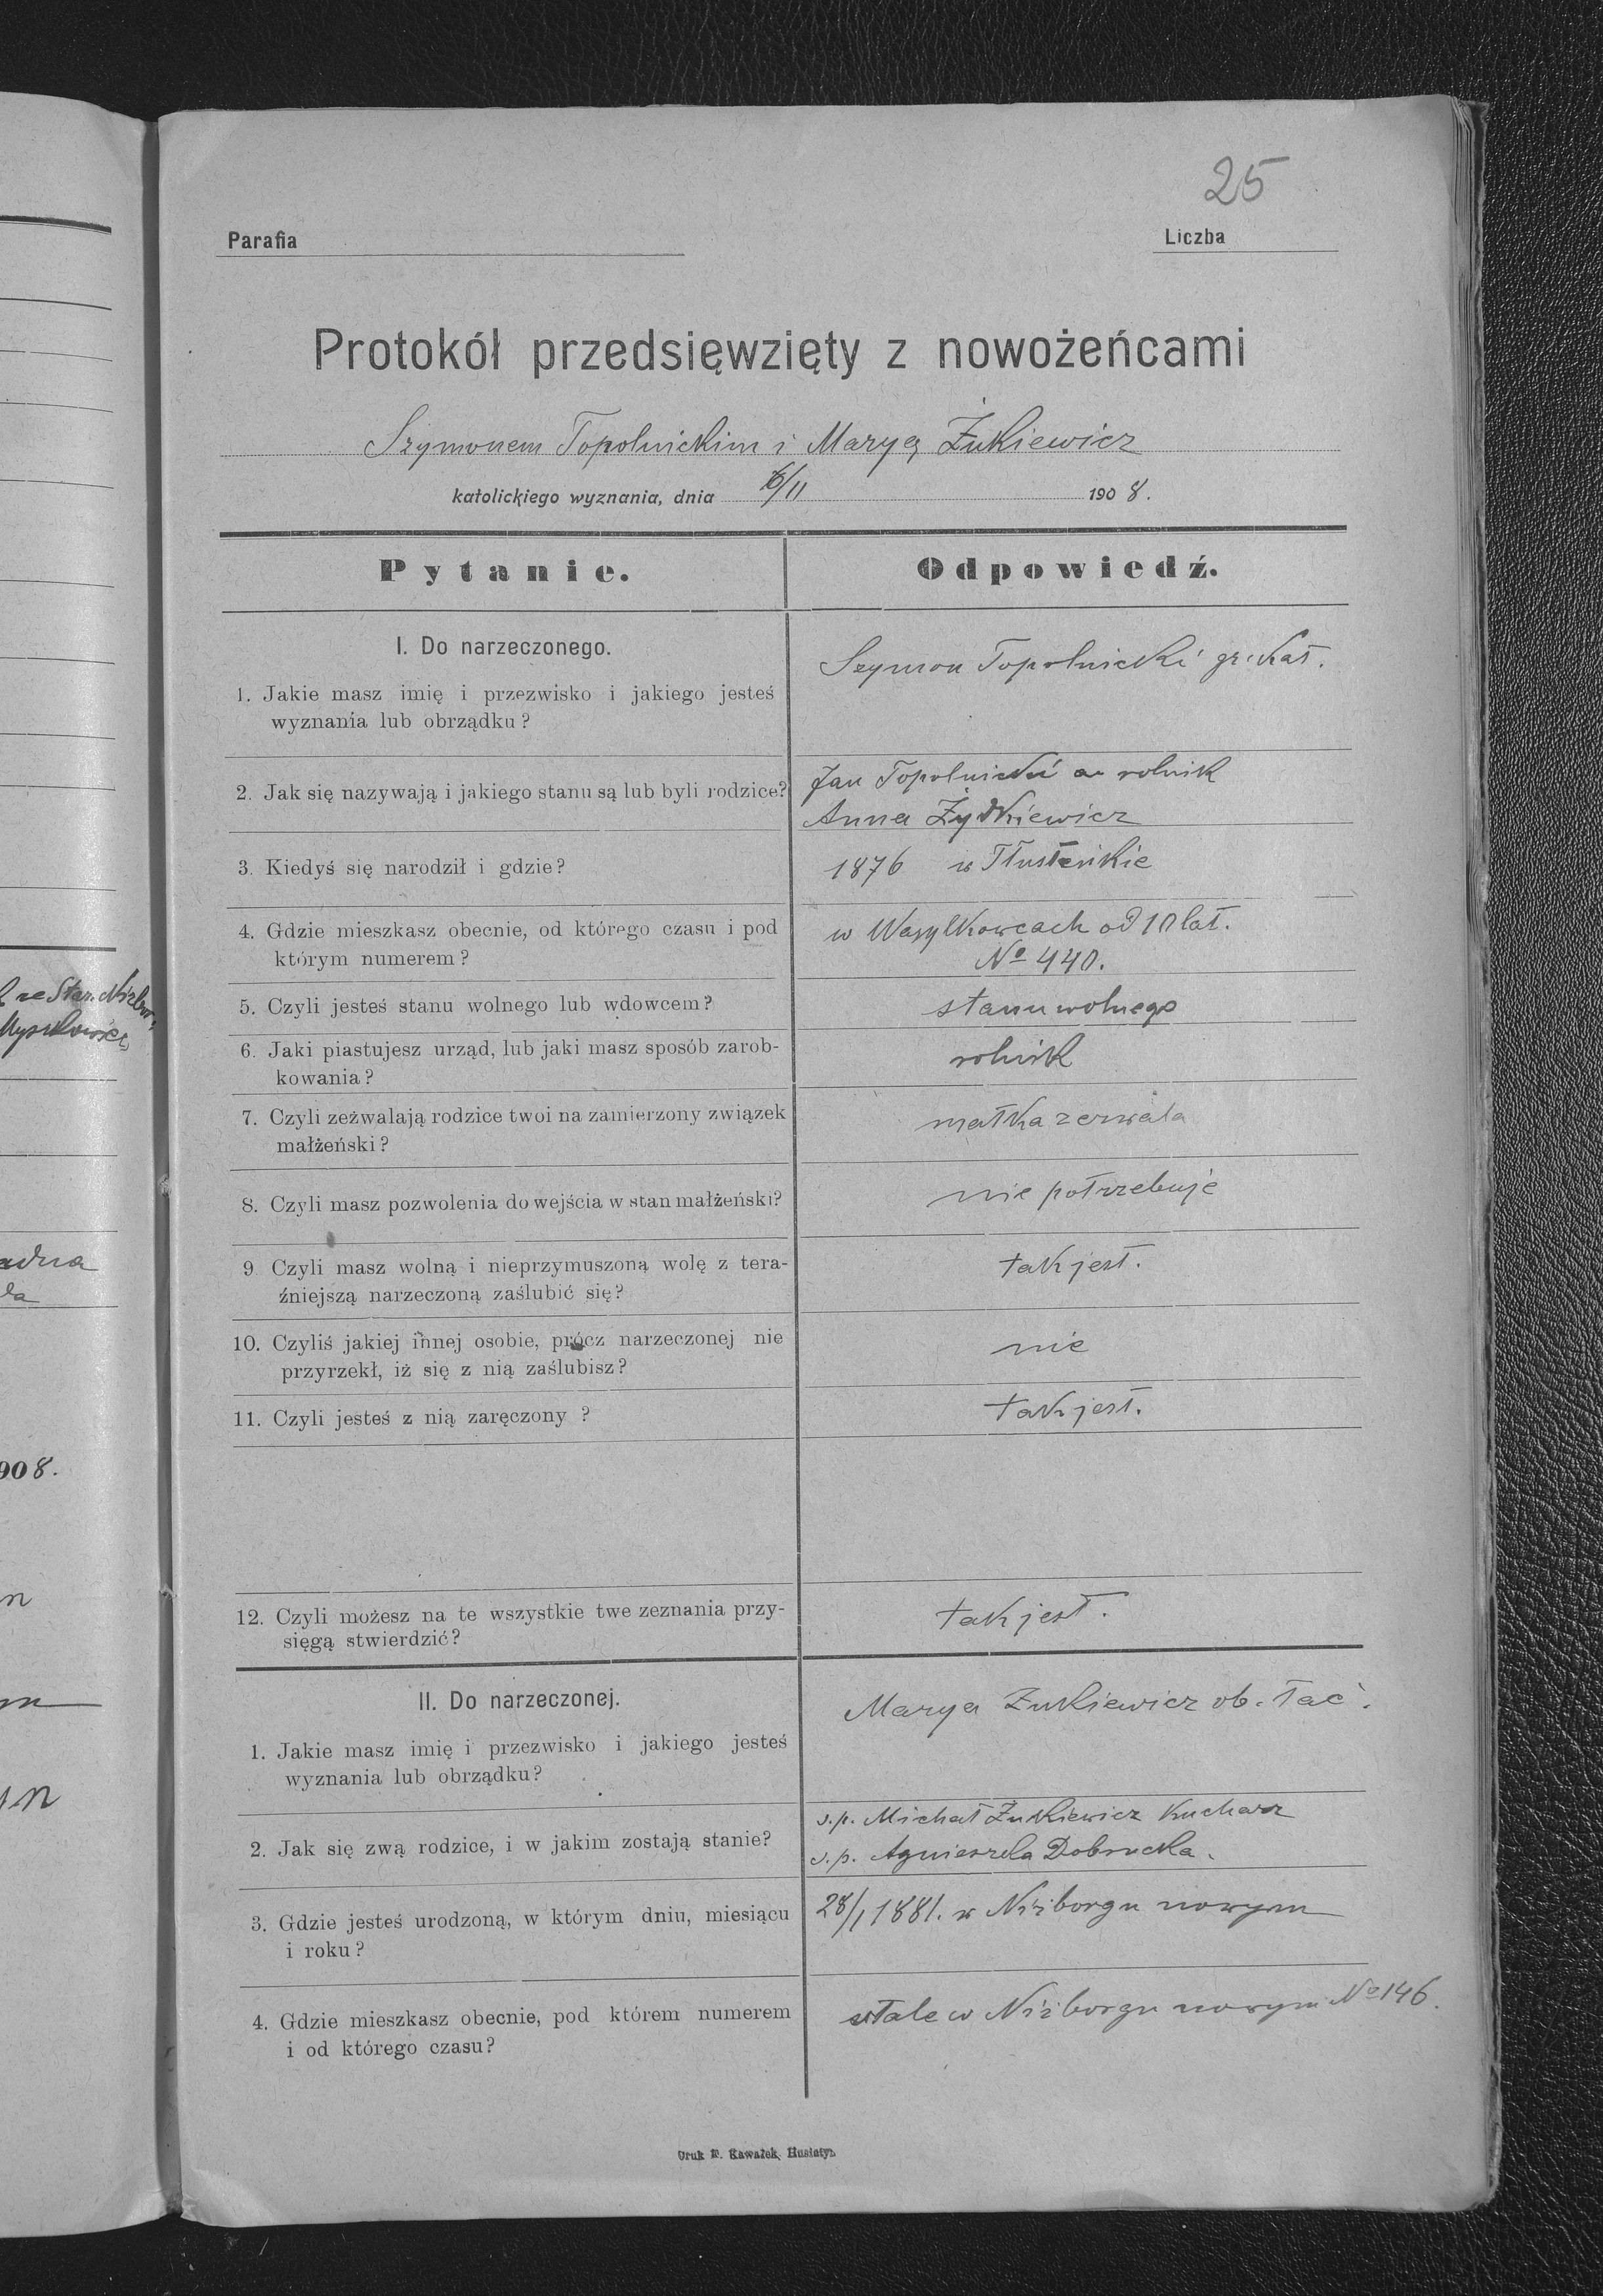 25
Parafia
Liczba
Protokół przedsięwzięty z nowożeńcami
Szymonem Topolnickim i Maryą Żukiewicz
katolickiego wyznania, dnia 6/11 1908.
Pytanie.
Odpowiedź.
I. Do narzeczonego.
1. Jakie masz imię i przezwisko i jakiego jesteś
wyznania lub obrządku?
Szymon Topolnicki gr. kat.
2. Jak się nazywają i jakiego stanu są lub byli rodzice?
Jan Topolnicki rolnik
Anna Żydkiewicz
3. Kiedyś się narodził i gdzie?
1876 w Tłusteńkie
4. Gdzie mieszkasz obecnie, od którego czasu i pod
którym numerem?
w Wasylkowcach od 10 lat.
No 440.
5. Czyli jesteś stanu wolnego lub wdowcem?
stanu wolnego
6. Jaki piastujesz urząd, lub jaki masz sposób zarob-
kowania?
rolnik
7. Czyli zeżwalają rodzice twoi na zamierzony związek
małżeński?
matka zezwala
8. Czyli masz pozwolenia do wejścia w stan małżeński?
nie potrzebuje
9 Czyli masz wolną i nieprzymuszoną wolę z tera-
źniejszą narzeczoną zaślubić się?
tak jest.
10. Czyliś jakiej innej osobie, prócz narzeczonej nie
przyrzekł, iż się z nią zaślubisz?
nie
11. Czyli jesteś z nią zaręczony ?
tak jest.
12. Czyli możesz na te wszystkie twe zeznania przy-
sięgą stwierdzić?
tak jest.
II. Do narzeczonej.
1. Jakie masz imię i przezwisko i jakiego jesteś
wyznania lub obrządku?
Marya Żukiewicz ob. łać.
2. Jak się zwą rodzice, i w jakim zostają stanie?
ś.p. Michał Żukiewicz kucharz
ś.p. Agnieszka Dobrucka.
3. Gdzie jesteś urodzoną, w którym dniu, miesiącu
i roku?
28/1 1881. w Niżborgu nowym
4. Gdzie mieszkasz obecnie, pod którem numerem
i od którego czasu?
stale w Niżborgu nowym No 146.
Druk F. Kawałek, Husiatyn
908.